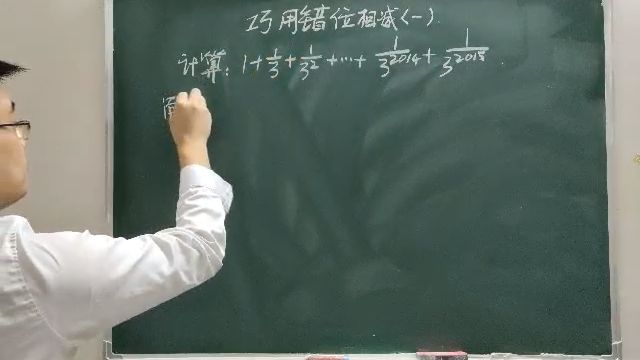 巧用错位相减(一)
计算: 1+1/3+1/3²+⋯+1/3²⁰¹⁴+1/3²⁰¹⁵